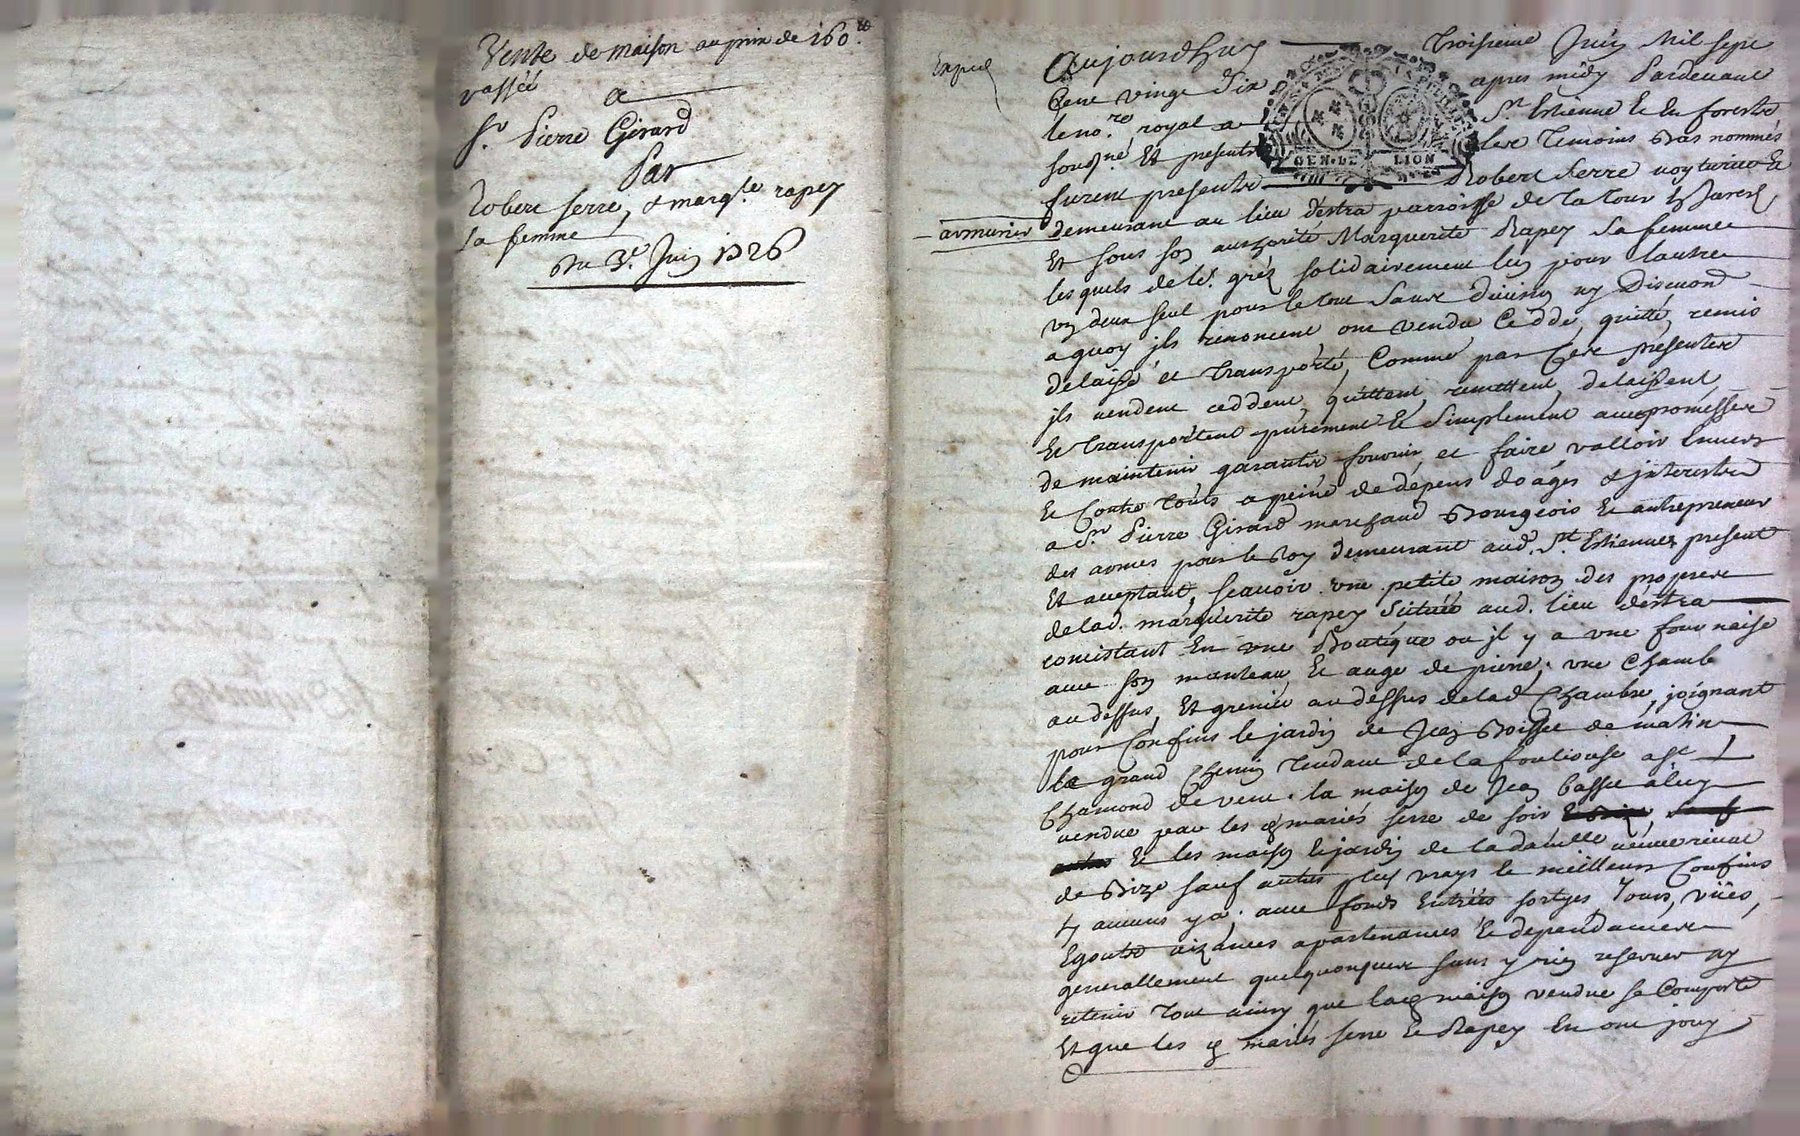 Vente de maison au prix de 160 tt
passéé
a
Sr. Pierre Girard
Par
Robert serre, & margte. rapey
sa femme
Du 3e. Juin 1726
Expié
Aujourdhuy troisieme Juin Mil sept
Cent vingt six apres midy Pardevant
le nore. royal a St. Estienne & en forestz
sousné. Et presents les temoins Bas nommés
furent presents Robert serre voyturier Et
armurier
demeurant au lieu destra parroisse de la tour En Jarest
Et sous son authorité Marguerite Rapey sa femme
lesquels de le. gréz solidairement lun pour lautre
un deux seul pour le tout sans division ny Discution
a quoy jls renoncent ont vendu Céddé, quitté, remis
delaissé et transporté, Comme par Ces presentes
jls vendent ceddent, quittent, remettent, delaissent
Et transportent purement & simplement avec promesse
de maintenir garantir fournir et faire valloir Envers
& Contre touts a peine de depens doages & jnterestz
a Sr. Pierre Girard marchand Bourgeois & entrepreneur
des armes pour le roy demeurant aud. St. Estienne present
Et acceptant, scavoir une petite maison des propres
de lad. marguerite rapey située aud. lieu destra
concistant En une Boutique ou jl y a une fournaise
avec son manteau & auge de pierre, une Chamb
audessus, Et grenier au dessus de lad Chambre, joignant
pour Confins le jardin de Jean Boisse de matin
le grand Chemin tendant de la fouliouse a St
Chamond de vent. la maison de Jean basset a luy
vendue par les mariés serre de soir
Et les maison & jardin de la damlle veuve
de Bize sauf autres plus vrays & meilleurs Confins
sy aucuns y a. avec fonds Entrées sortyes, Jours, vües,
Egouts aizances apartenances & dependances
generallement quelquonques sans y rien reserver ny
retenir tout ainsy que lad maison vendue se Comporte
Et que les mariés serre & Rapey En ont jouy
GEN. DE LION